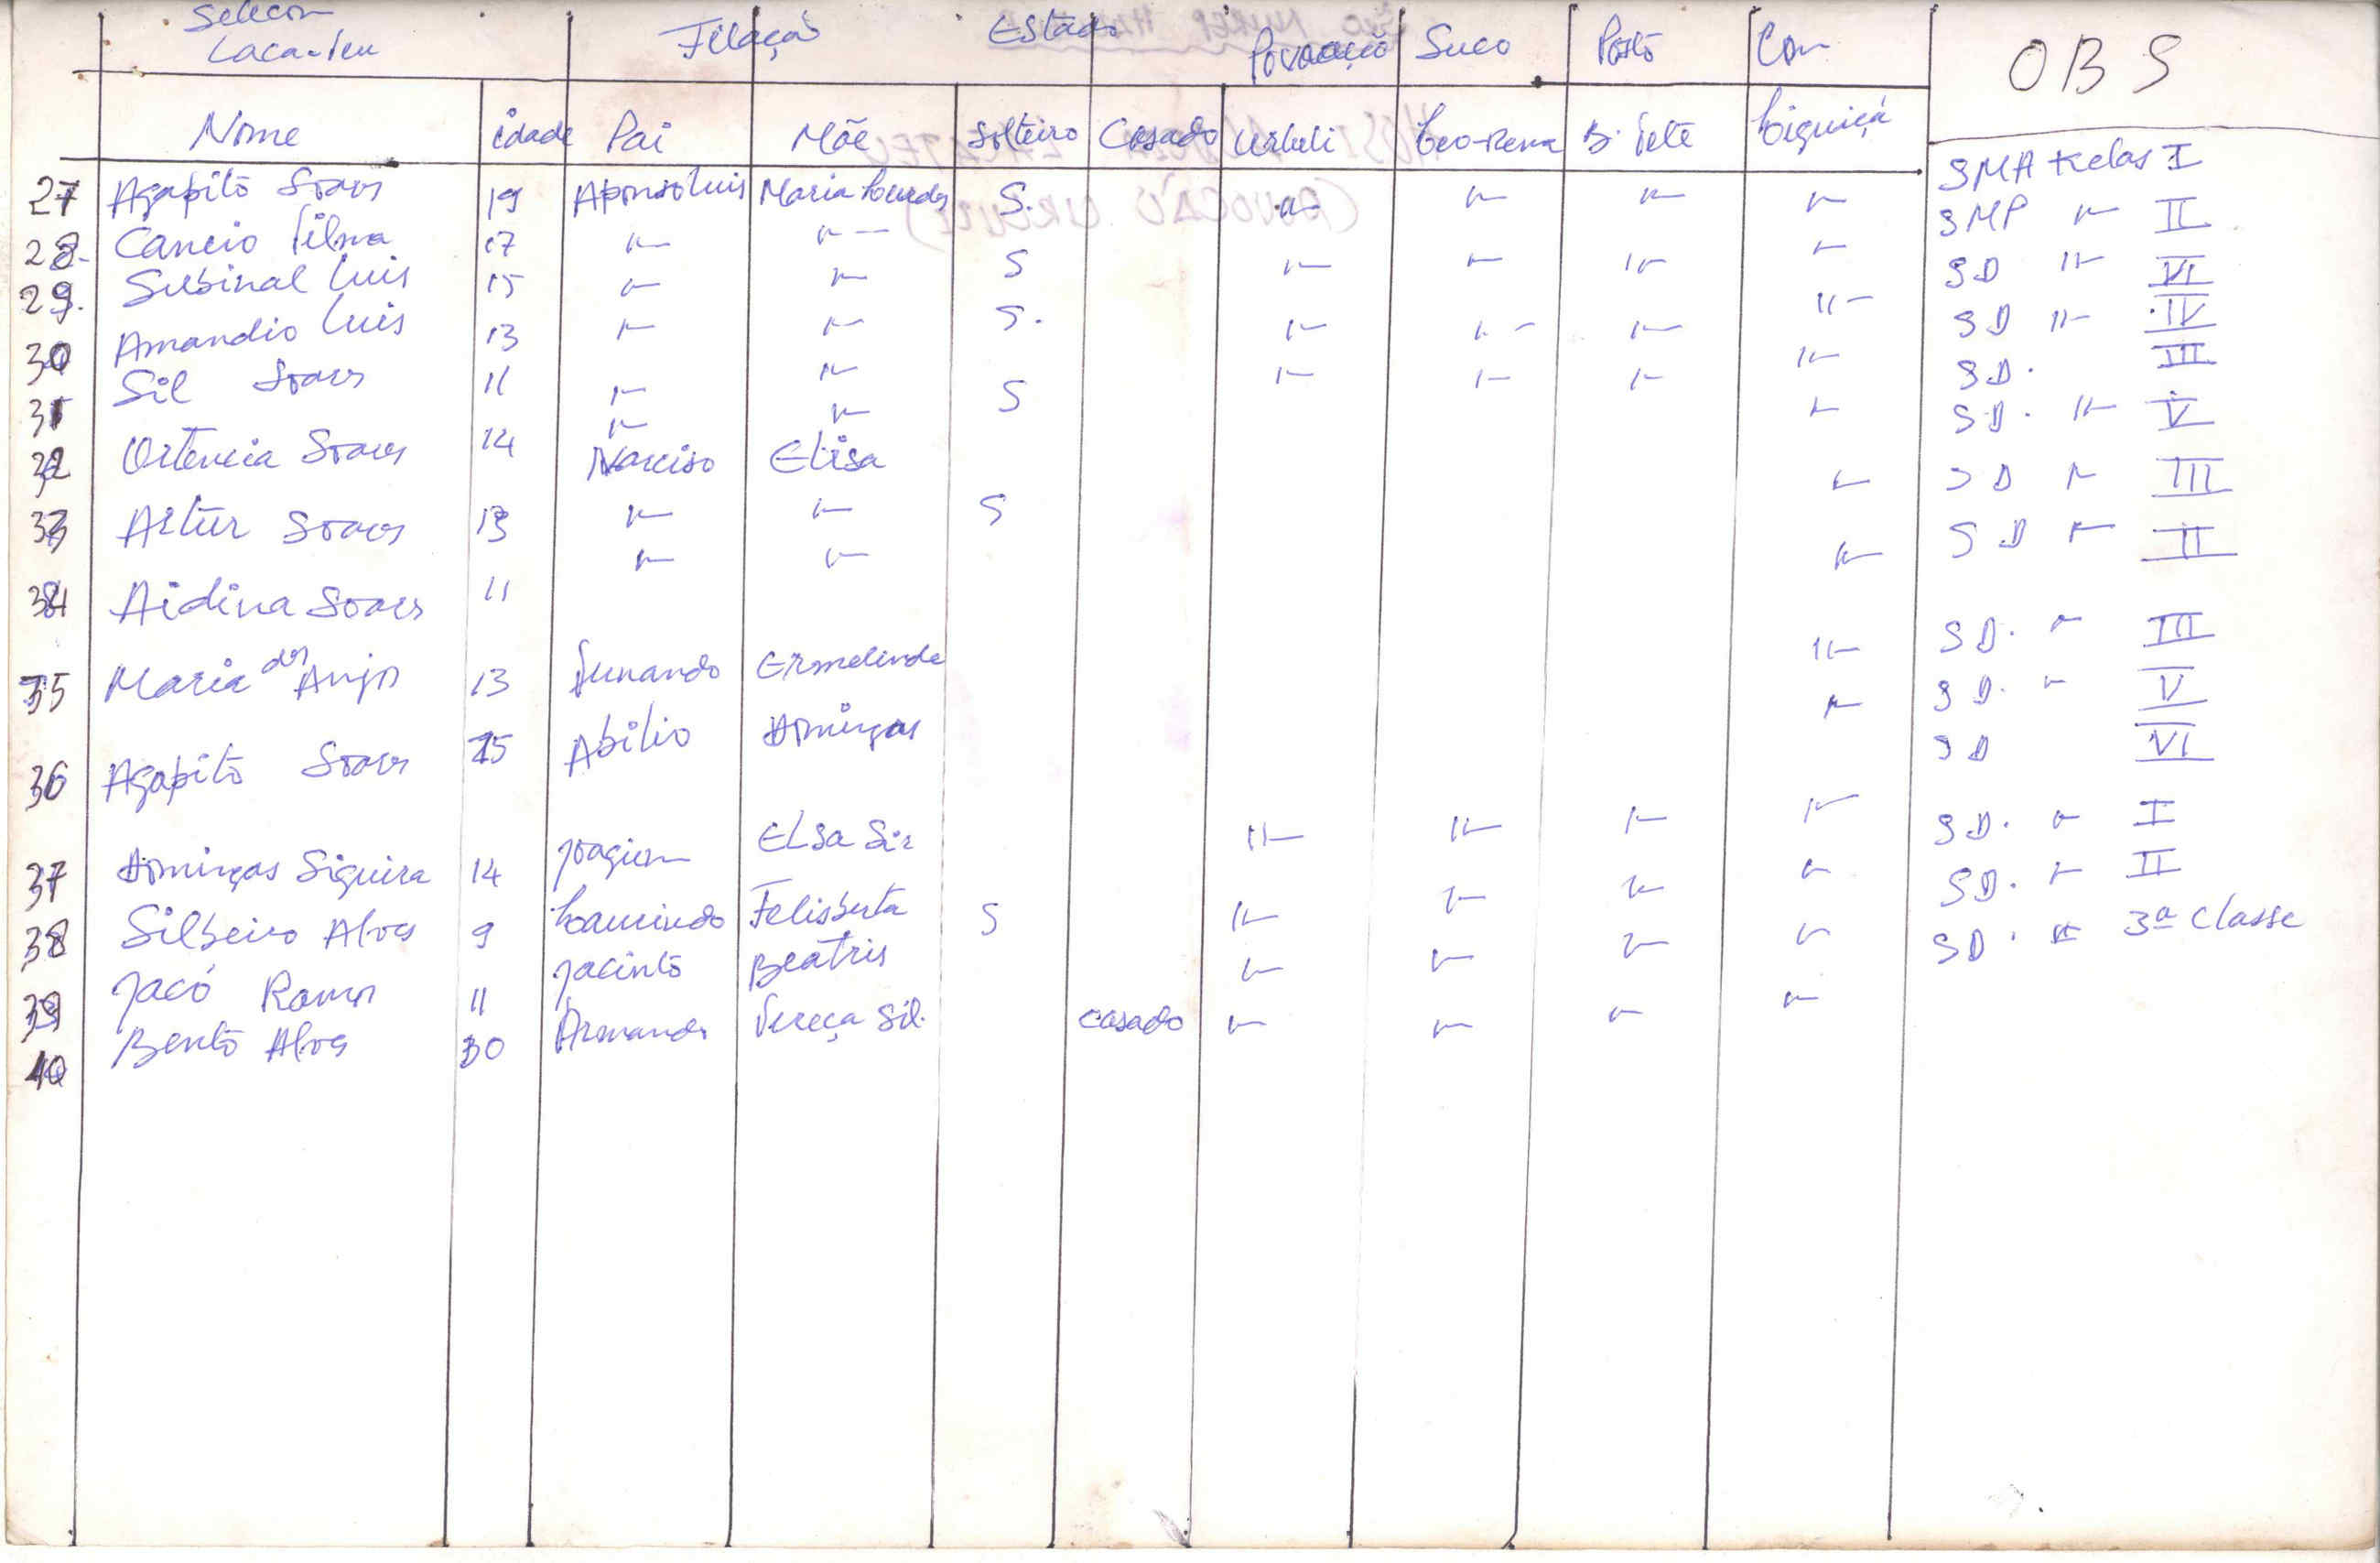 Selecom Filaçaõ Estado Povoação Suco Posto Con OBS
Laca-Teu
Nome idade Pai Mãe Solteiro Casado Urheli Leo-Rema B. Tete Liquiçá
27 Agapito Soares 19 Afonso Luis Maria Lourdes S. "— "— "— "— SMA Kelas I
28. Cancio Filma 17 "— "— SMP "— II
29. Silbinal Luis 15 "— "— S "— "— "— "— SD "— VI
30 Amandio Luis 13 "— "— S. "— "— "— "— SD "— IV
31 Sil Soares 11 "— "— S "— "— "— "— SD. III
32 Ortencia Soares 14 "— "— "— SD. "— V
Narciso Elisa
33 Artur Soares 13 "— "— S "— SD "— III
34 Aidina Soares 11 "— "— "— SD "— II
35 Maria dos Anjos 13 Fernando Ermelinda "— SD. "— III
SD. "— V
36 Agapito Soares 15 Abilio Domingas "— SD VI
37 Domingas Siqueira 14 Joaquim Elsa Sir "— "— "— "— SD. "— I
38 Silbeiro Alves 9 Laurindo Felisberta S "— "— "— "— SD. "— II
39 Jacó Ramos 11 Jacinto Beatris "— "— "— "— SD. "— 3ª Classe
40 Bento Alves 30 Armando Tereça Sil. casado "— "— "— "—